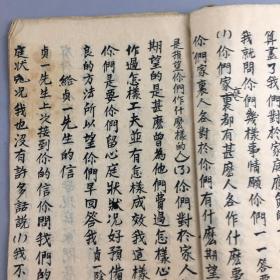 算盡了我
我就問你們幾樣事情願你們一一答
(1)你們家裏都有甚麼人各作
你們家裏人各對於你們有什麼期望
是指望你們作什麼樣的人(3)你們對於家人
期望的是甚麼曾為他們費過怎樣心
作過怎樣工夫並有怎樣成效我這樣
你們是要你們留心庭狀狀況好預備
良的方法所以望你們早回答我
給貞一先生的信
貞一先生上次接到你的信問我們的
庭狀況我也沒有許多話說(1)我